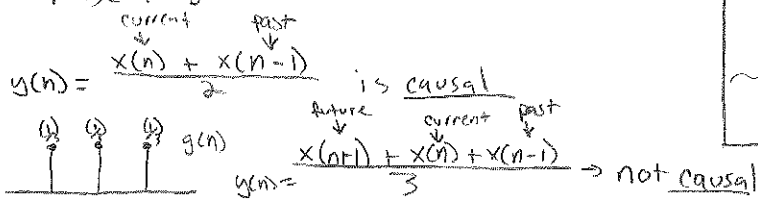 current past
y(n) = x(n) + x(n-1) / 2 is causal
future current past
(1/3) (1/3) (1/3) g(n) y(n) = x(n+1) + x(n) + x(n-1) / 3 → not causal